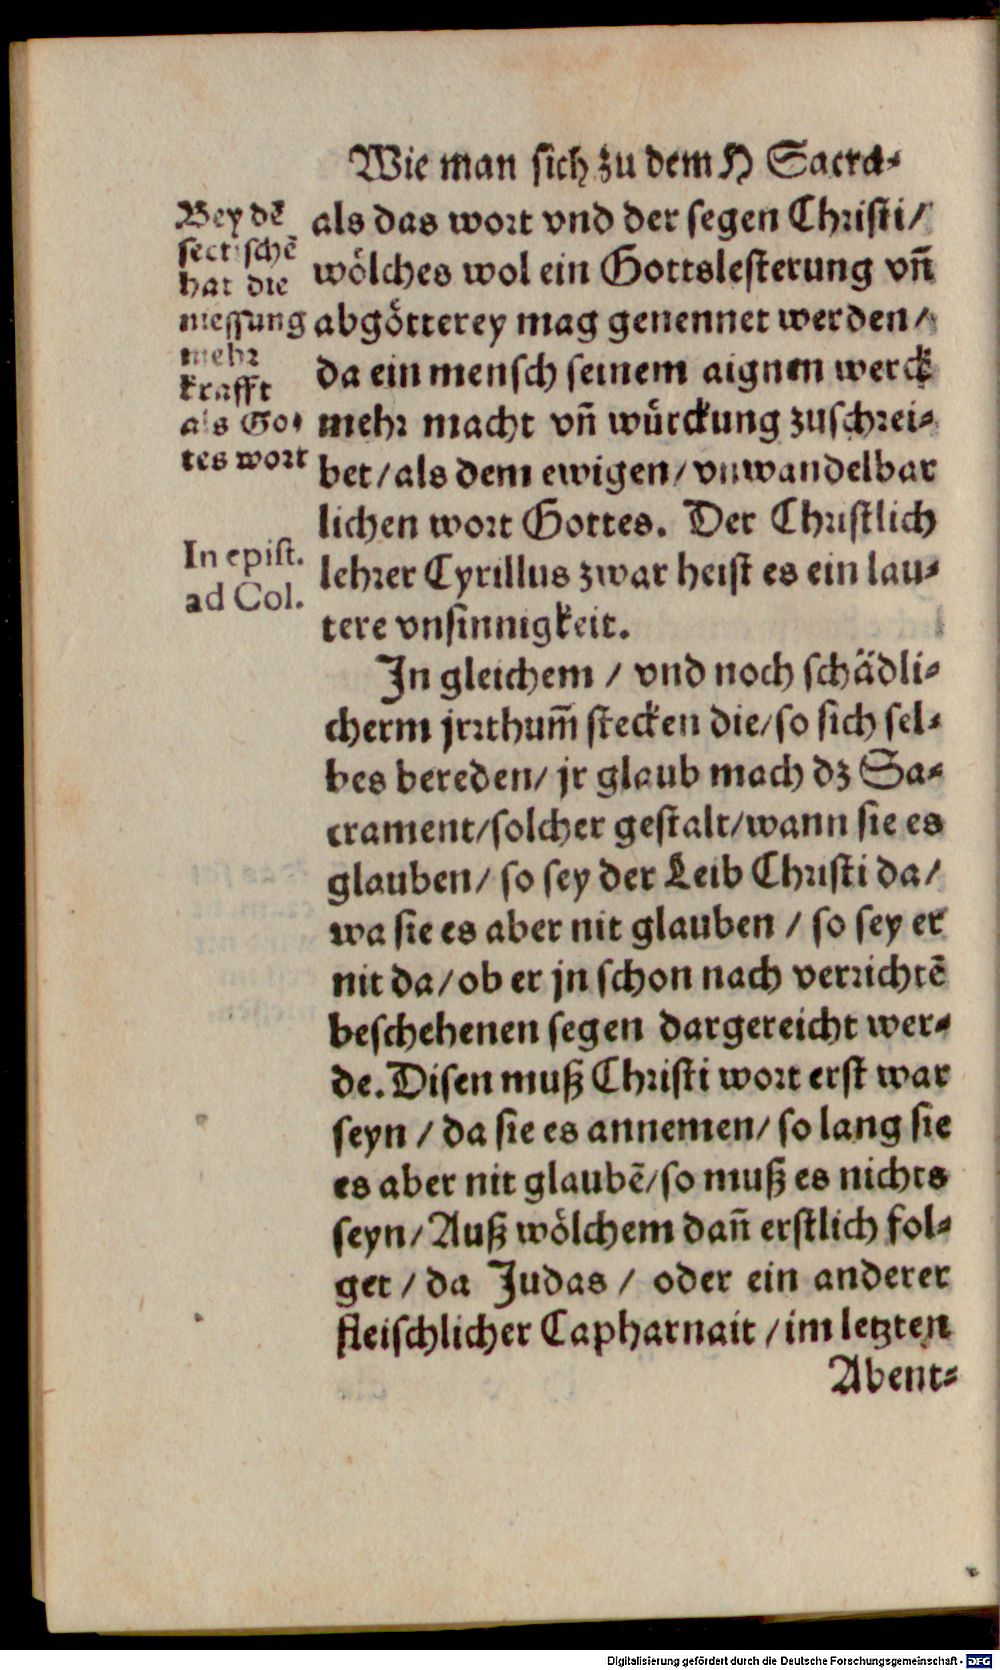 Wie man sich zu dem H Sacra-
Bey dē
sectischē
hat die
messung
mehr
krafft
als Go-
tes wort
In epist.
ad Col.
als das wort vnd der segen Christi/
wölches wol ein Gottslesterung vñ
abgötterey mag genennet werden/
da ein mensch seinem aignen werck
mehr macht vñ würckung zuschrei-
bet/als dem ewigen/vnwandelbar
lichen wort Gottes. Der Christlich
lehrer Cyrillus zwar heist es ein lau-
tere vnsinnigkeit.
In gleichem / vnd noch schädli-
cherm jrrthum̄ stecken die/so sich sel-
bes bereden/ jr glaub mach dz Sa-
crament/solcher gestalt/wann sie es
glauben/ so sey der Leib Christi da/
wa sie es aber nit glauben / so sey er
nit da/ob er jn schon nach verrichtē
beschehenen segen dargereicht wer-
de. Disen muß Christi wort erst war
seyn / da sie es annemen/ so lang sie
es aber nit glaubē/so muß es nichts
seyn/Auß wölchem dañ erstlich fol-
get / da Judas / oder ein anderer
fleischlicher Capharnait /im letzten
Abent-
Digitalisierung gefördert durch die Deutsche Forschungsgemeinschaft - DFG